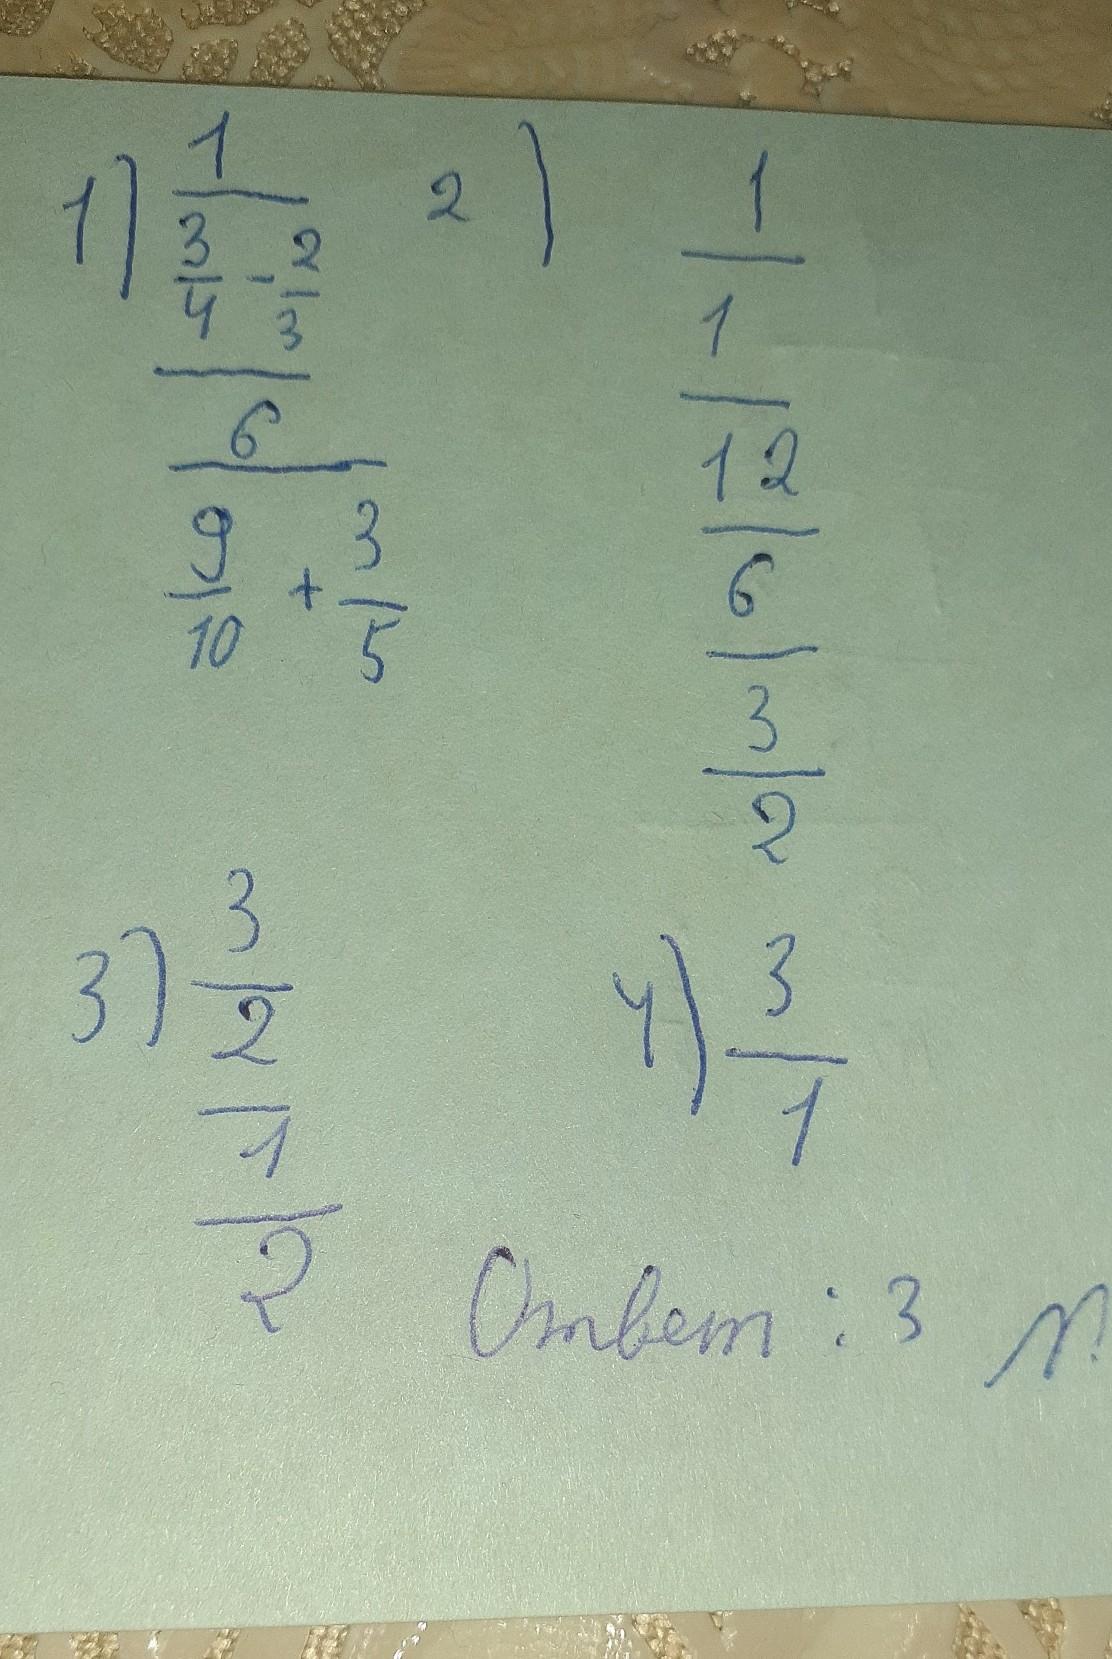 1) 1
3/4 - 2/3
6
9/10 + 3/5
2) 1
1
12
6
3
2
3) 3
2
1
2
4) 3
1
Ответ : 3